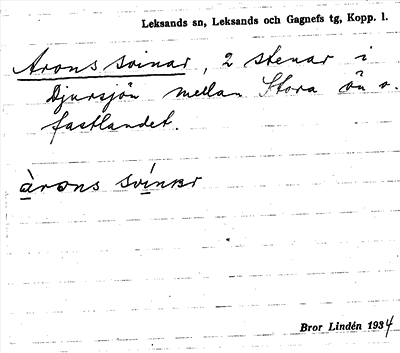 Leksands sn, Leksands och Gagnefs tg, Kopp. l.
Arons svinar, 2 stenar i
Djursjön mellan Stora ön o.
fastlandet.
àrons svínɐr
Bror Lindén 1934